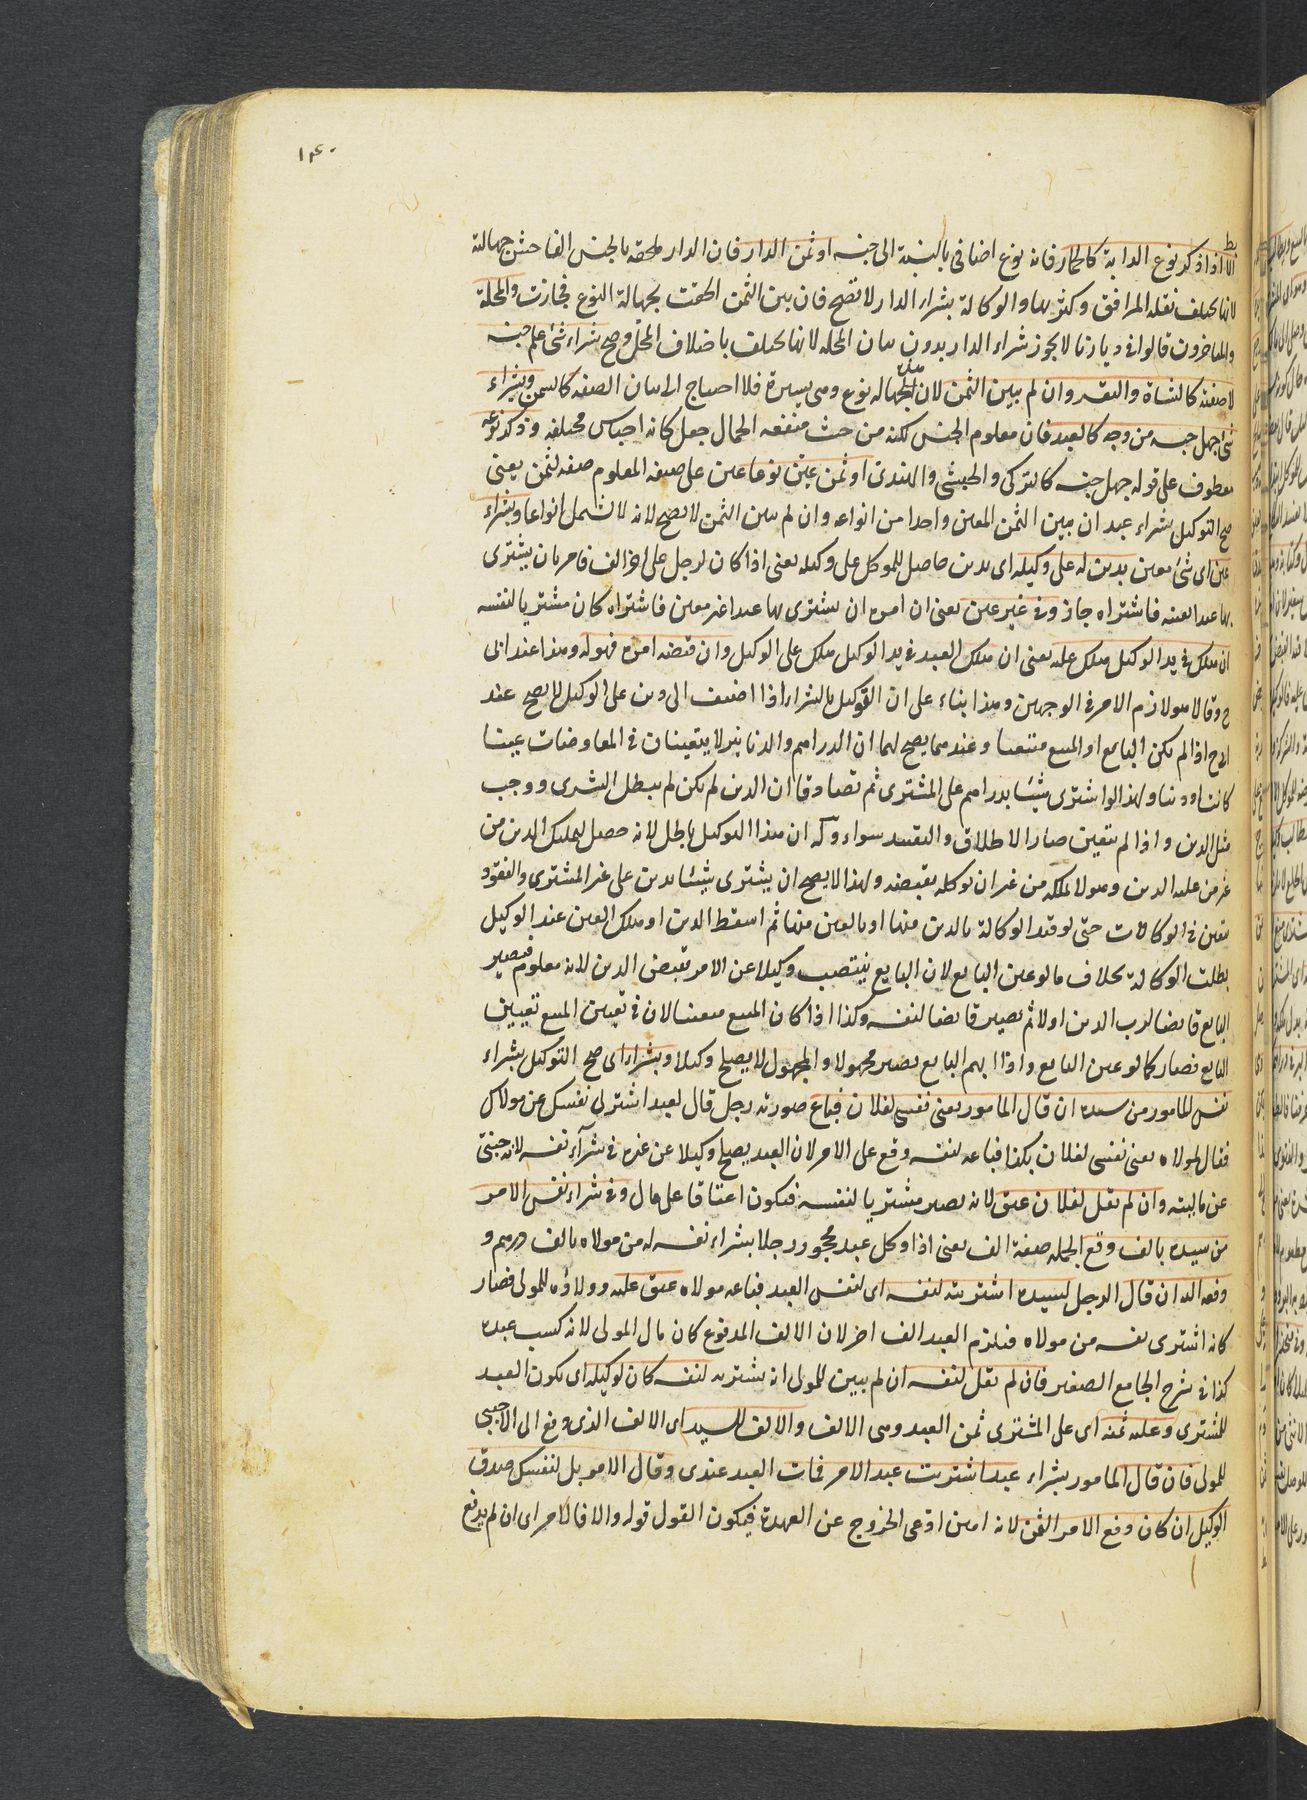 ١٤٠
الا اذا ذكر نوع الدابة كالحمار فانه نوع اضافي بالنسبة الى جنسه او ثمن الدار فان الدار ملحقة بالجنس الفاحش جهالته
لانها تختلف بقلة المرافق وكثرتها والوكالة بشراء الدار لا تصح فان بين الثمن الحقت بجهالة النوع فجازت والمحلة
والمتاخرون قالوا في ديارنا لا يجوز شراء الدار بدون بيان المحلة لانها تختلف باختلاف المحل وصح شراء شئ علم جنسه
لا صفته كالشاة والبقر وان لم يبين الثمن لان الجهالة نوع وهي يسيرة فلا احتياج الى بيان الصفة كالسمن وبشراء
شئ جهل جنسه من وجه كالعبد فان معلوم الجنس لكنه من حيث منفعة الجمال جعل كانه اجناس مختلفة وذكر نوعه
معطوف على قوله جهل جنسه كالتركي والحبشي والهندى او ثمن عين نوعا عين على صيغة المعلوم صفة لثمن يعنى
صح التوكيل بشراء عبد ان بين الثمن المعين واحدا من انواعه وان لم يبين الثمن لا يصح لانه لا يشمل انواعا وبشراء
عين اى شئ معين بدين له على وكيله اى بدين حاصل للموكل على وكيله يعنى اذا كان لرجل على اخر الف فامر بان يشترى
بها عبدا بعينه فاشتراه جاز وفي غير عين يعنى ان امره ان يشترى بها عبدا غير معين فاشتراه كان مشتريا لنفسه
ان هلك في يد الوكيل هلك عليه يعنى ان هلك العبد في يد الوكيل هلك على الوكيل وان قبضه امره فهو له وهذا عند ابى
ح وقالا هو لازم الامر في الوجهين وهذا بناء على ان التوكيل بالشراء اذا اضيف الى دين على الوكيل لا يصح عند
ابى ح اذا لم يكن البايع او المبيع متعينا وعندهما يصح لهما ان الدراهم والدنانير لا يتعينان في المعاوضات عينا
كانت او دينا ولهذا لو اشترى شيئا بدراهم على المشترى ثم تصادقا ان الدين لم يكن لم يبطل الشرى ووجب
مثل الدين واذا لم يتعين صار الاطلاق والتقييد سواء وله ان هذا التوكيل باطل لانه حصل تمليك الدين من
غير من عليه الدين وهو لا يملكه من غير ان يوكله بقبضه ولهذا لا يصح ان يشترى شيئا بدين على غير المشترى والنقود
يتعين في الوكالات حتى لو قيد الوكالة بالدين منها او بالعين منها ثم اسقط الدين او هلك العين عند الوكيل
بطلت الوكالة بخلاف ما لو عين البايع لان البايع ينتصب وكيلا عن الامر بقبض الدين لانه معلوم فيصير
البايع قابضا لرب الدين اولا ثم يصير قابضا لنفسه وكذا اذا كان المبيع معينا لان في تعيين المبيع تعيين
البايع فصار كما لو عين البايع واذا ابهم البايع يصير مجهولا والمجهول لا يصلح وكيلا وبشراء اى صح التوكيل بشراء
نفس المامور من سيده ان قال المامور بعنى نفسى لفلان فباع صورته رجل قال لعبد اشتر لى نفسك عن مولاك
فقال لمولاه بعنى نفسى لفلان بكذا فباعه لنفسه وقع على الامر لان العبد يصلح وكيلا عن غيره في شراء نفسه لانه جنبى
عن ماليته وان لم يقل لفلان عتق لانه يصير مشتريا لنفسه فيكون اعتاقا على مال وفي شراء نفس الامر
من سيده بالف وقع الجملة صفة الف يعنى اذا وكل عبد محجور رجلا بشراء نفسه له من مولاه بالف درهم و
دفعه اليه ان قال الرجل لسيده اشتريته لنفسه اى لنفس العبد فباعه مولاه عتق عليه وولاؤه للمولى فصار
كانه اشترى نفسه من مولاه فيلزم العبد الف اخر لان الالف المدفوع كان مال المولى لانه كسب عبده
كذا في شرح الجامع الصغير فان لم يقل لنفسه ان لم يبين للمولى انه يشتريه لنفسه كان لوكيله اى يكون العبد
للمشترى وعليه ثمنه اى على المشترى ثمن العبد وهى الالف والالف لسيده اى الالف الذى دفع الى الاجنبى
للمولى فان قال المامور بشراء عبد اشتريت عبد الامر فمات العبد عندى وقال الامر بل لنفسك صدق
الوكيل ان كان دفع الامر الثمن لانه امين ادعى الخروج عن العهدة فيكون القول قوله والا فالامر اى ان لم يدفع